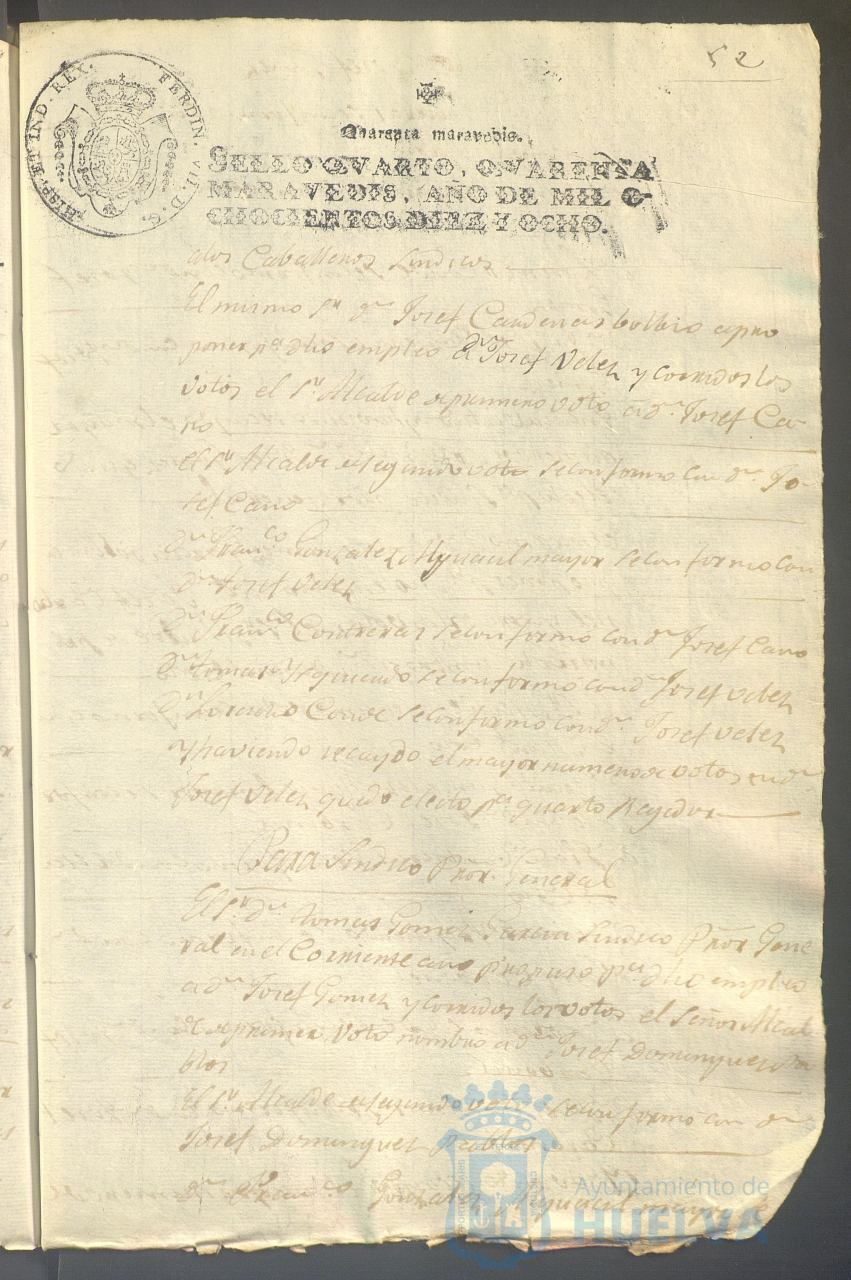 52
HISP. ET IND. REX. FERDIN. VII. D. G.
Quarenta maravedis.
SELLO QVARTO, QVARENTA
MARAVEDIS, AÑO DE MIL O-
CHOCIENTOS DIEZ Y OCHO.
alos Caballeros Sindicos
El mismo Sr. dn. Josef Cardenas bolbio apro
poner pa. dho empleo a dn. Josef Velez y corridos los
votos el Sr. Alcalde de primero voto a dn. Josef Ca
no
el Sr. Alcalde de segundo voto se conformo con dn. Jo-
sef Cano
dn. Franco. Gonzalez Alguacil mayor se conformo con
dn. Josef Velez
dn. Franco. Contreras se conformo con dn. Josef Cano
dn. tomas Yzquierdo se conformo con dn. Josef velez
dn. Lorenzo se conformo con dn. Josef velez
y haviendo recaydo el mayor numero de votos en dn.
Josef Velez quedo electo pa. quarto Regidor
Para Sindico Pror. General
El Sr. dn. tomas Gomez Garcia Sindico Pror. Gene
ral en el Corriente año propuso pa. dho empleo
a dn. Josef Gomez y corridos los votos el Señor Alcal
de de primer voto nombro a dn. Josef Dominguez
blos
El Sr. Alcalde de segundo voto se conformo con dn.
Josef Dominguez
dn. Franco. Gonzalez Alguacil mayor
Ayuntamiento de
HUELVA